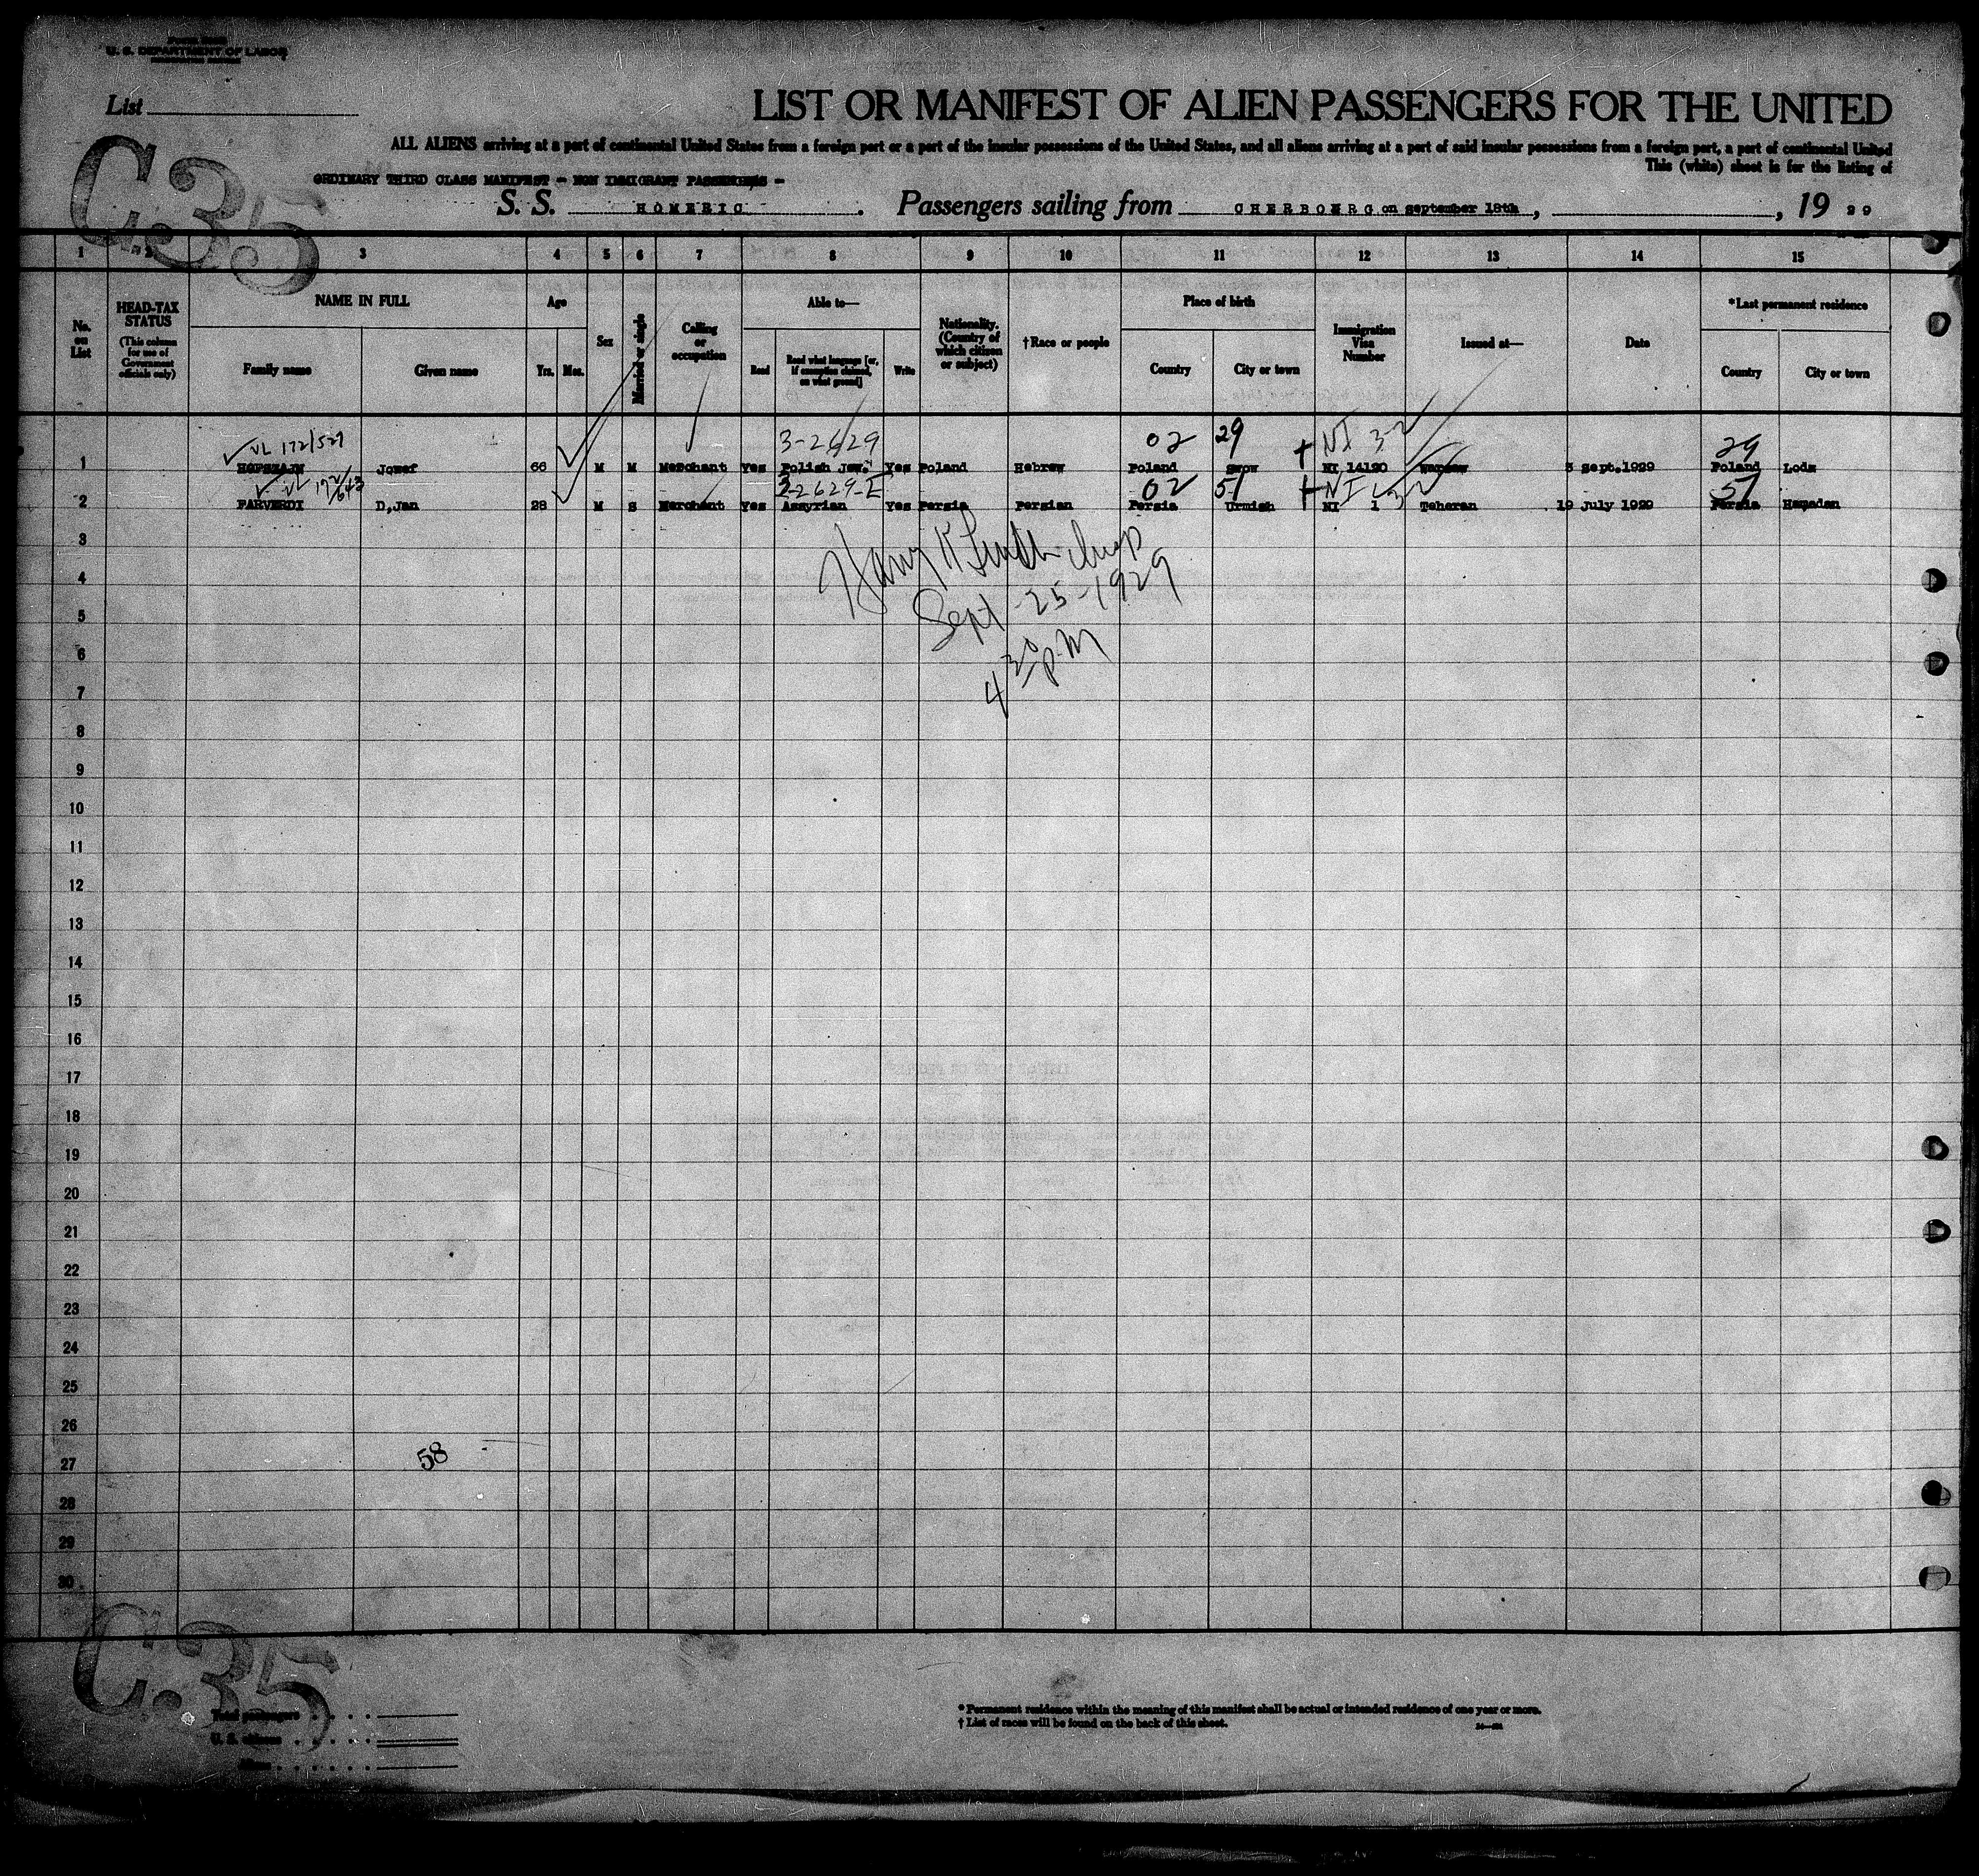 U. S. DEPARTMENT OF LABOR
List
LIST OR MANIFEST OF ALIEN PASSENGERS FOR THE UNITED
C.35
ALL ALIENS arriving at a port of continental United States from a foreign port or a port of the insular possessions of the United States, and all aliens arriving at a port of said insular possessions from a foreign port, a port of continental United
This (white) sheet is for the listing of
ORDINARY THIRD CLASS MANIFEST - NON IMMIGRANT PASSENGERS -
S. S. HOMERIC. Passengers sailing from CHERBOURG on september 18th, , 19 29
1 2 3 4 5 6 7 8 9 10 11 12 13 14 15
No. on List
HEAD-TAX STATUS
(This column for use of Government officials only)
NAME IN FULL
Family name Given name
Age
Yrs. Mos.
Sex
Married or single
Calling or occupation
Able to—
Read Read what language [or, if exemption claimed, on what ground] Write
Nationality. (Country of which citizen or subject)
†Race or people
Place of birth
Country City or town
Immigration Visa Number
Issued at—
Date
*Last permanent residence
Country City or town
VL 172/529 3-2629 02 29 + NI 3-2 29
1 Jozef 66 M M Merchant Yes Polish Jew. Yes Poland Hebrew Poland NI 14120 Warsaw 3 sept.1929 Poland Lodz
VL 172/643 3-2629-E 02 51 + NI 3-2 51
2 PARVERDI D,Jan 28 M S Merchant Yes Assyrian Yes Persia Persian Persia Urmiah NI 1 Teheran 19 July 1929 Persia Hamadan
3
Harry K
4
Sept-25-1929
5
6
4 30 p.M
7
8
9
10
11
12
13
14
15
16
17
18
19
20
21
22
23
24
25
26
58
27
28
29
30
C.35
* Permanent residence within the meaning of this manifest shall be actual or intended residence of one year or more.
† List of races will be found on the back of this sheet.
Total passengers
U. S. citizens
Aliens